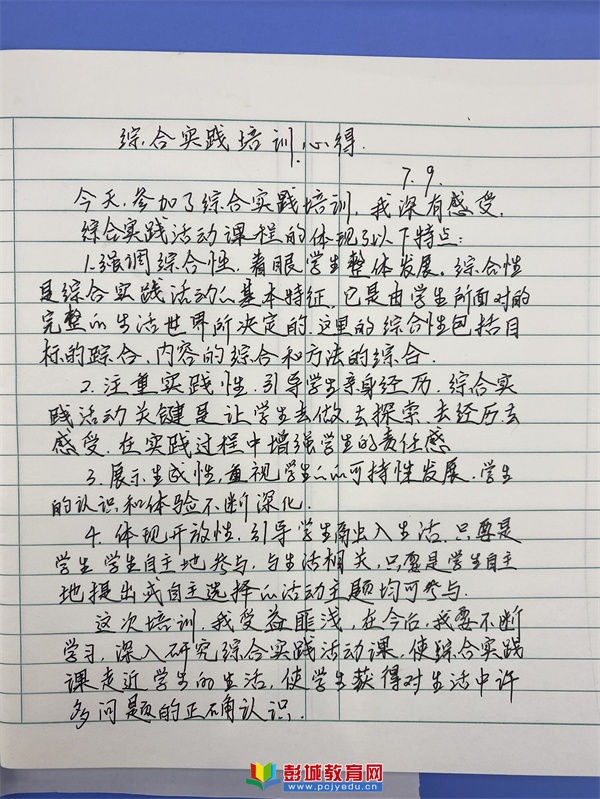 综合实践培训心得.
7.9.
今天,参加了综合实践培训,我深有感受.
综合实践活动课程的体现了以下特点:
1.强调综合性,着眼学生整体发展.综合性
是综合实践活动的基本特征,它是由学生所面对的
完整的生活世界所决定的.这里的综合性包括目
标的踪合,内容的综合和方法的综合.
2.注重实践性,引导学生亲身经历,综合实
践活动关键是让学生去做,去探索,去经历,去
感受,在实践过程中增强学生的责任感
3.展示生成性,重视学生的可持性发展.学生
的认识和体验不断深化.
4.体现开放性,引导学生高出入生活,只要是
学生学生自主地参与,与生活相关,只要是学生自主
地提出或自主选择的活动主题均可参与.
这次培训,我受益匪浅,在今后,我要不断
学习,深入研究综合实践活动课,使综合实践
课走近学生的生活,使学生获得对生活中许
多问题的正确认识.
彭城教育网
www.pcjyedu.cn